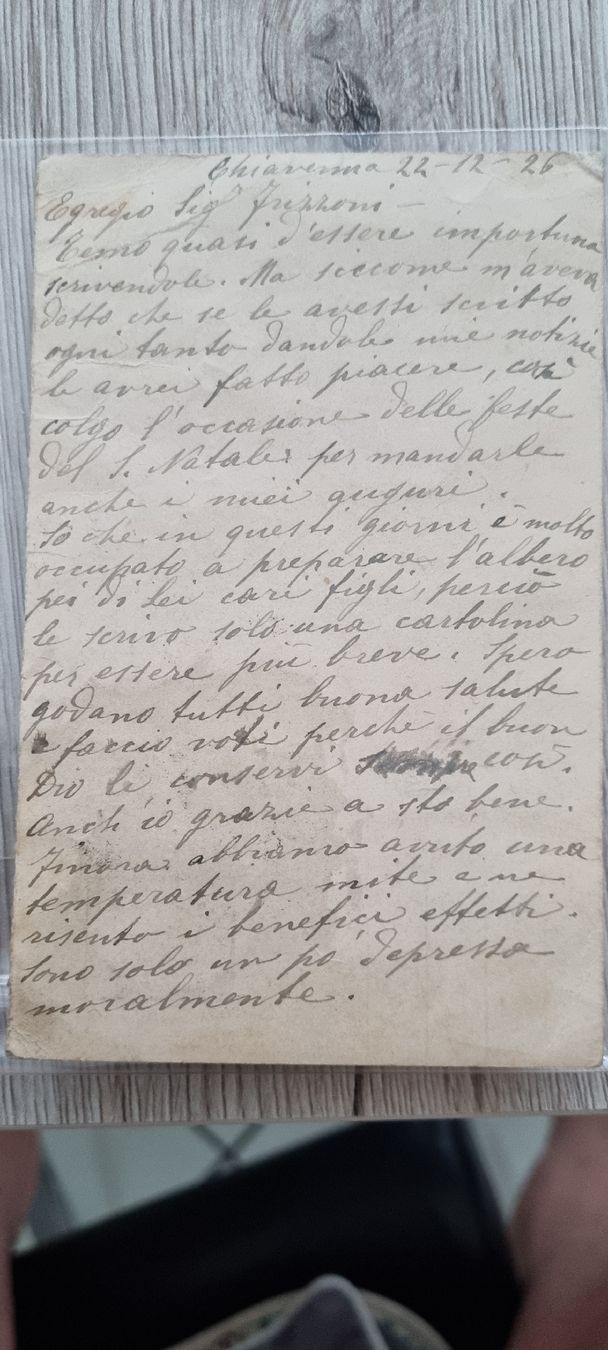 Chiavenna 22-12-26
Egregio Sigr Frizzoni -
Temo quasi d'essere importuna
scrivendole. Ma siccome m'aveva
detto che se le avessi scritto
ogni tanto dandole mie notizie
le avrei fatto piacere, così
colgo l'occasione delle feste
del S. Natale: per mandarle
anche i miei auguri.
So che in questi giorni è molto
occupato a preparare l'albero
pei di Lei cari figli, perciò
le scrivo solo una cartolina
per essere più breve. Spero
godano tutti buona salute
e faccio voti perchè il buon
Dio li conservi così.
Anch'io grazie a sto bene.
Finora abbiamo avuto una
temperatura mite e ne
risento i benefici effetti.
Sono solo un po' depressa
moralmente.